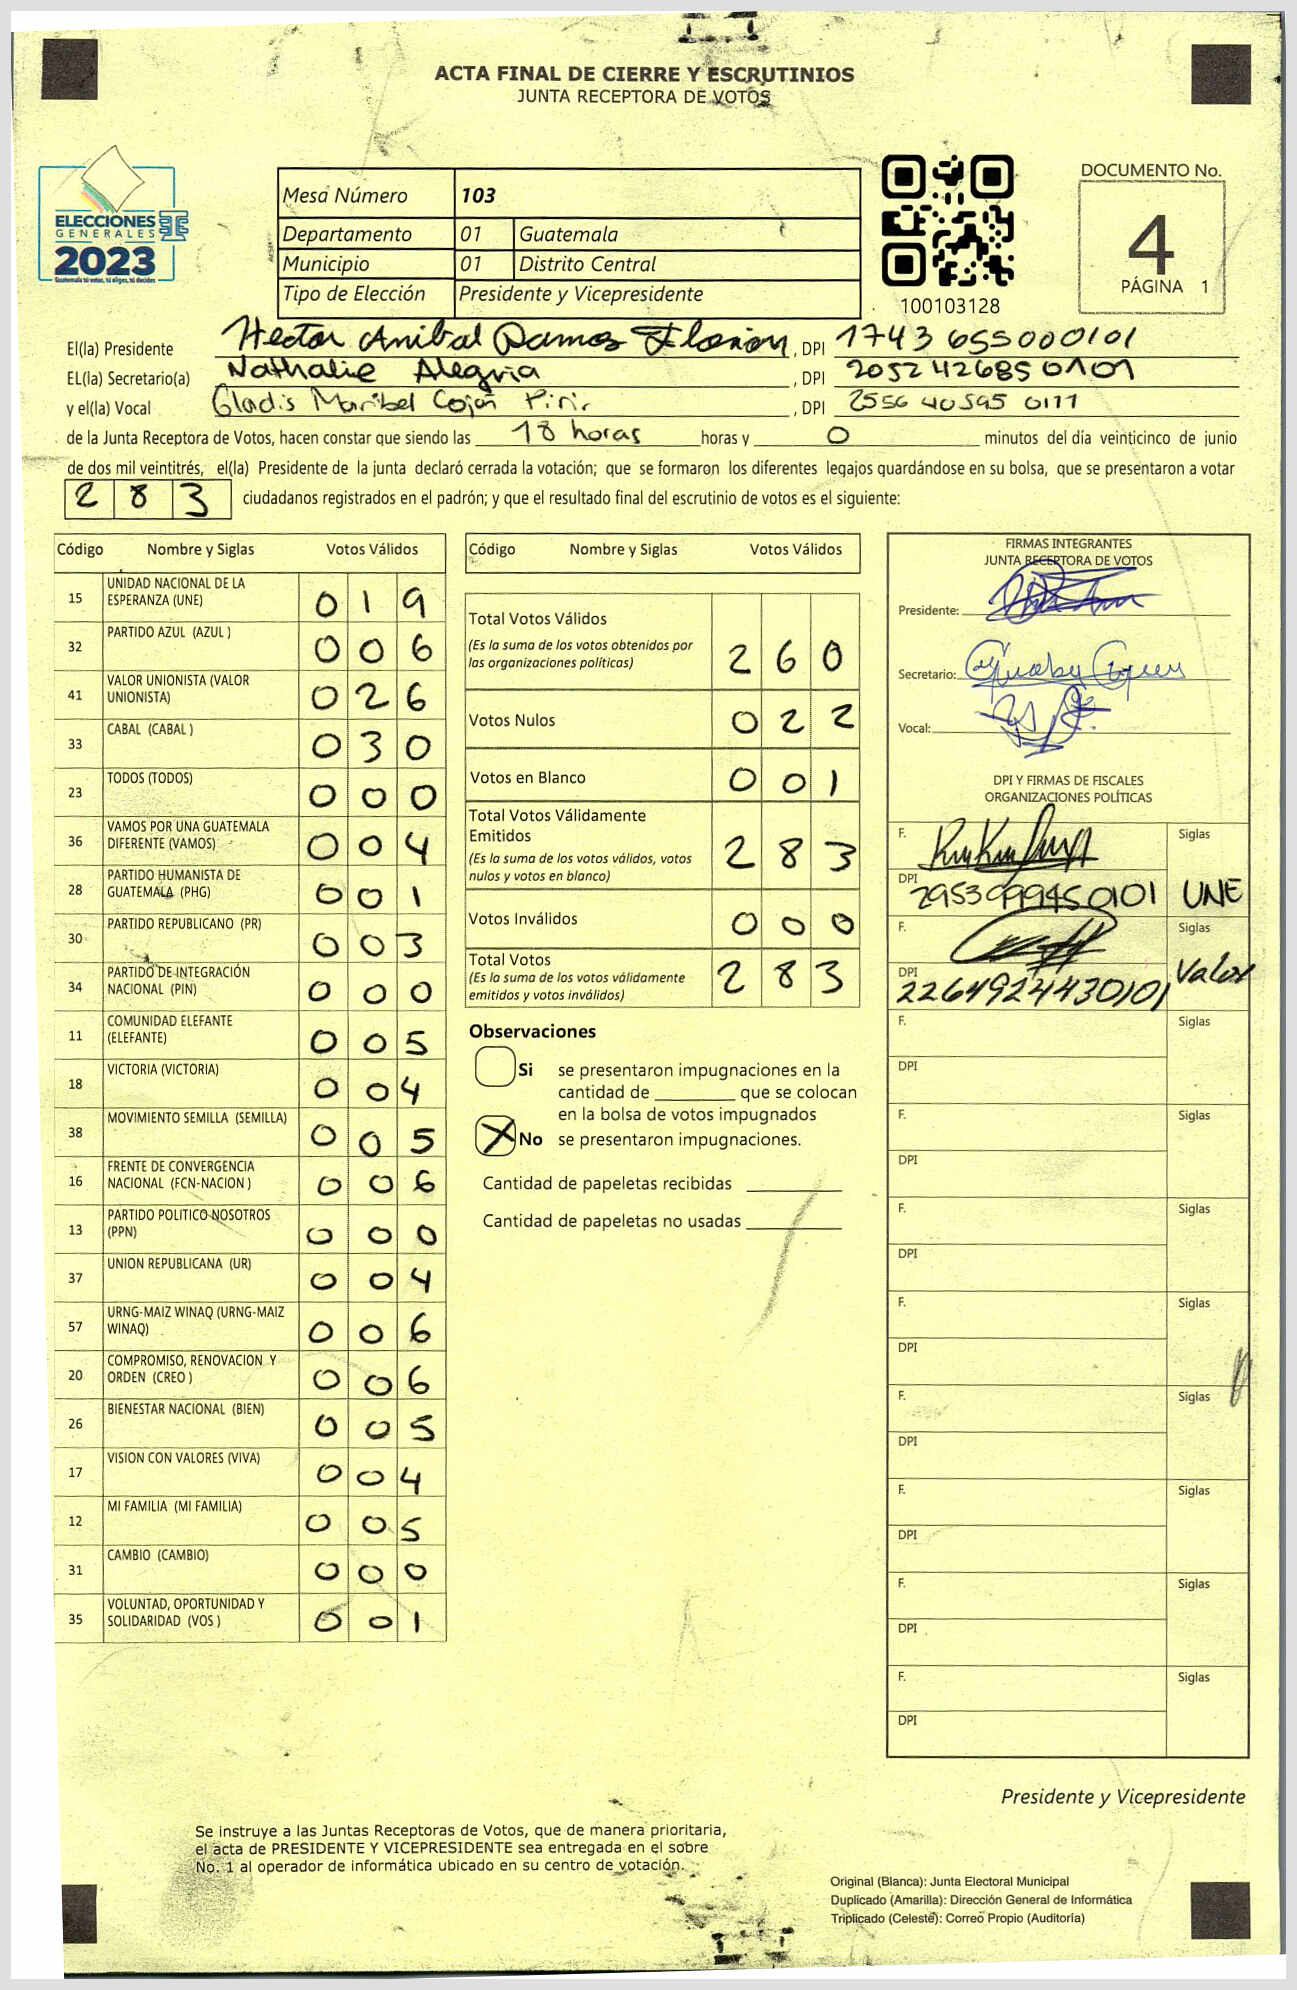 ACTA FINAL DE CIERRE Y ESCRUTINIOS
JUNTA RECEPTORA DE VOTOS
ELECCIONES
GENERALES
2023
Guatemala tú votas, tú eliges, tú decides
Mesa Número 103
Departamento 01 Guatemala
Municipio 01 Distrito Central
Tipo de Elección Presidente y Vicepresidente
100103128
DOCUMENTO No.
4
PÁGINA 1
El(la) Presidente Hector Anibal Ramos , DPI 1743 655000101
EL(la) Secretario(a) Nathalie Alegria , DPI 2052426850101
y el(la) Vocal Gladis Maribel Cojón Pirir , DPI 2556 40595 0111
de la Junta Receptora de Votos, hacen constar que siendo las 18 horas horas y 0 minutos del día veinticinco de junio
de dos mil veintitrés, el(la) Presidente de la junta declaró cerrada la votación; que se formaron los diferentes legajos quardándose en su bolsa, que se presentaron a votar
2 8 3 ciudadanos registrados en el padrón; y que el resultado final del escrutinio de votos es el siguiente:
Código Nombre y Siglas Votos Válidos
15 UNIDAD NACIONAL DE LA
ESPERANZA (UNE) 0 1 9
32 PARTIDO AZUL (AZUL ) 0 0 6
41 VALOR UNIONISTA (VALOR
UNIONISTA) 0 2 6
33 CABAL (CABAL ) 0 3 0
23 TODOS (TODOS) 0 0 0
36 VAMOS POR UNA GUATEMALA
DIFERENTE (VAMOS) 0 0 4
28 PARTIDO HUMANISTA DE
GUATEMALA (PHG) 0 0 1
30 PARTIDO REPUBLICANO (PR) 0 0 3
34 PARTIDO DE INTEGRACIÓN
NACIONAL (PIN) 0 0 0
11 COMUNIDAD ELEFANTE
(ELEFANTE) 0 0 5
18 VICTORIA (VICTORIA) 0 0 4
38 MOVIMIENTO SEMILLA (SEMILLA) 0 0 5
16 FRENTE DE CONVERGENCIA
NACIONAL (FCN-NACION ) 0 0 6
13 PARTIDO POLITICO NOSOTROS
(PPN) 0 0 0
37 UNION REPUBLICANA (UR) 0 0 4
57 URNG-MAIZ WINAQ (URNG-MAIZ
WINAQ) 0 0 6
20 COMPROMISO, RENOVACION Y
ORDEN (CREO ) 0 0 6
26 BIENESTAR NACIONAL (BIEN) 0 0 5
17 VISION CON VALORES (VIVA) 0 0 4
12 MI FAMILIA (MI FAMILIA) 0 0 5
31 CAMBIO (CAMBIO) 0 0 0
35 VOLUNTAD, OPORTUNIDAD Y
SOLIDARIDAD (VOS ) 0 0 1
Código Nombre y Siglas Votos Válidos
Total Votos Válidos
(Es la suma de los votos obtenidos por
las organizaciones políticas) 2 6 0
Votos Nulos 0 2 2
Votos en Blanco 0 0 1
Total Votos Válidamente
Emitidos
(Es la suma de los votos válidos, votos
nulos y votos en blanco) 2 8 3
Votos Inválidos 0 0 0
Total Votos
(Es la suma de los votos válidamente
emitidos y votos inválidos) 2 8 3
Observaciones
Si se presentaron impugnaciones en la
cantidad de que se colocan
en la bolsa de votos impugnados
X No se presentaron impugnaciones.
Cantidad de papeletas recibidas
Cantidad de papeletas no usadas
FIRMAS INTEGRANTES
JUNTA RECEPTORA DE VOTOS
Presidente:
Secretario:
Vocal:
DPI Y FIRMAS DE FISCALES
ORGANIZACIONES POLÍTICAS
F. Siglas
DPI 2953999450101 UNE
F. Siglas
DPI 2264924430101 Valor
F. Siglas
DPI
F. Siglas
DPI
F. Siglas
DPI
F. Siglas
DPI
F. Siglas
DPI
F. Siglas
DPI
F. Siglas
DPI
F. Siglas
DPI
Presidente y Vicepresidente
Se instruye a las Juntas Receptoras de Votos, que de manera prioritaria,
el acta de PRESIDENTE Y VICEPRESIDENTE sea entregada en el sobre
No. 1 al operador de informática ubicado en su centro de votación.
Original (Blanca): Junta Electoral Municipal
Duplicado (Amarilla): Dirección General de Informática
Triplicado (Celeste): Correo Propio (Auditoría)